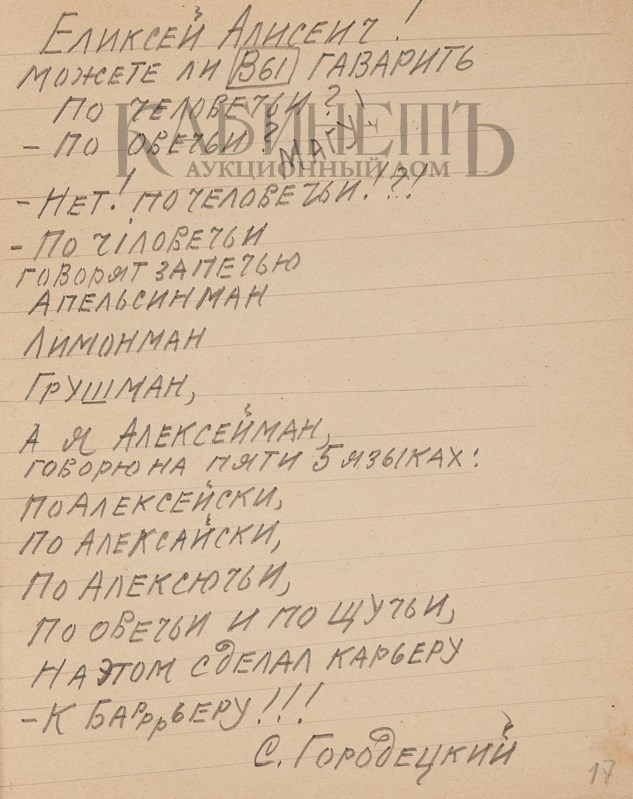 Еликсей Алисеич!
можете ли Вы гаварить
по человечьи?
- по овечьи? магу.
КАБИНЕТЪ
АУКЦИОННЫЙ ДОМ
- Нет! по человечьи!?!
- По чiловечьи
говорят за печью
Апельсинман
Лимонман
Грушман,
А я Алексейман,
говорю на пяти 5 языках:
по Алексейски,
по Алексайски,
по Алексючьи,
по овечьи и по щучьи,
На этом сделал карьеру
- К Баррръеру!!!
С. Городецкий
17